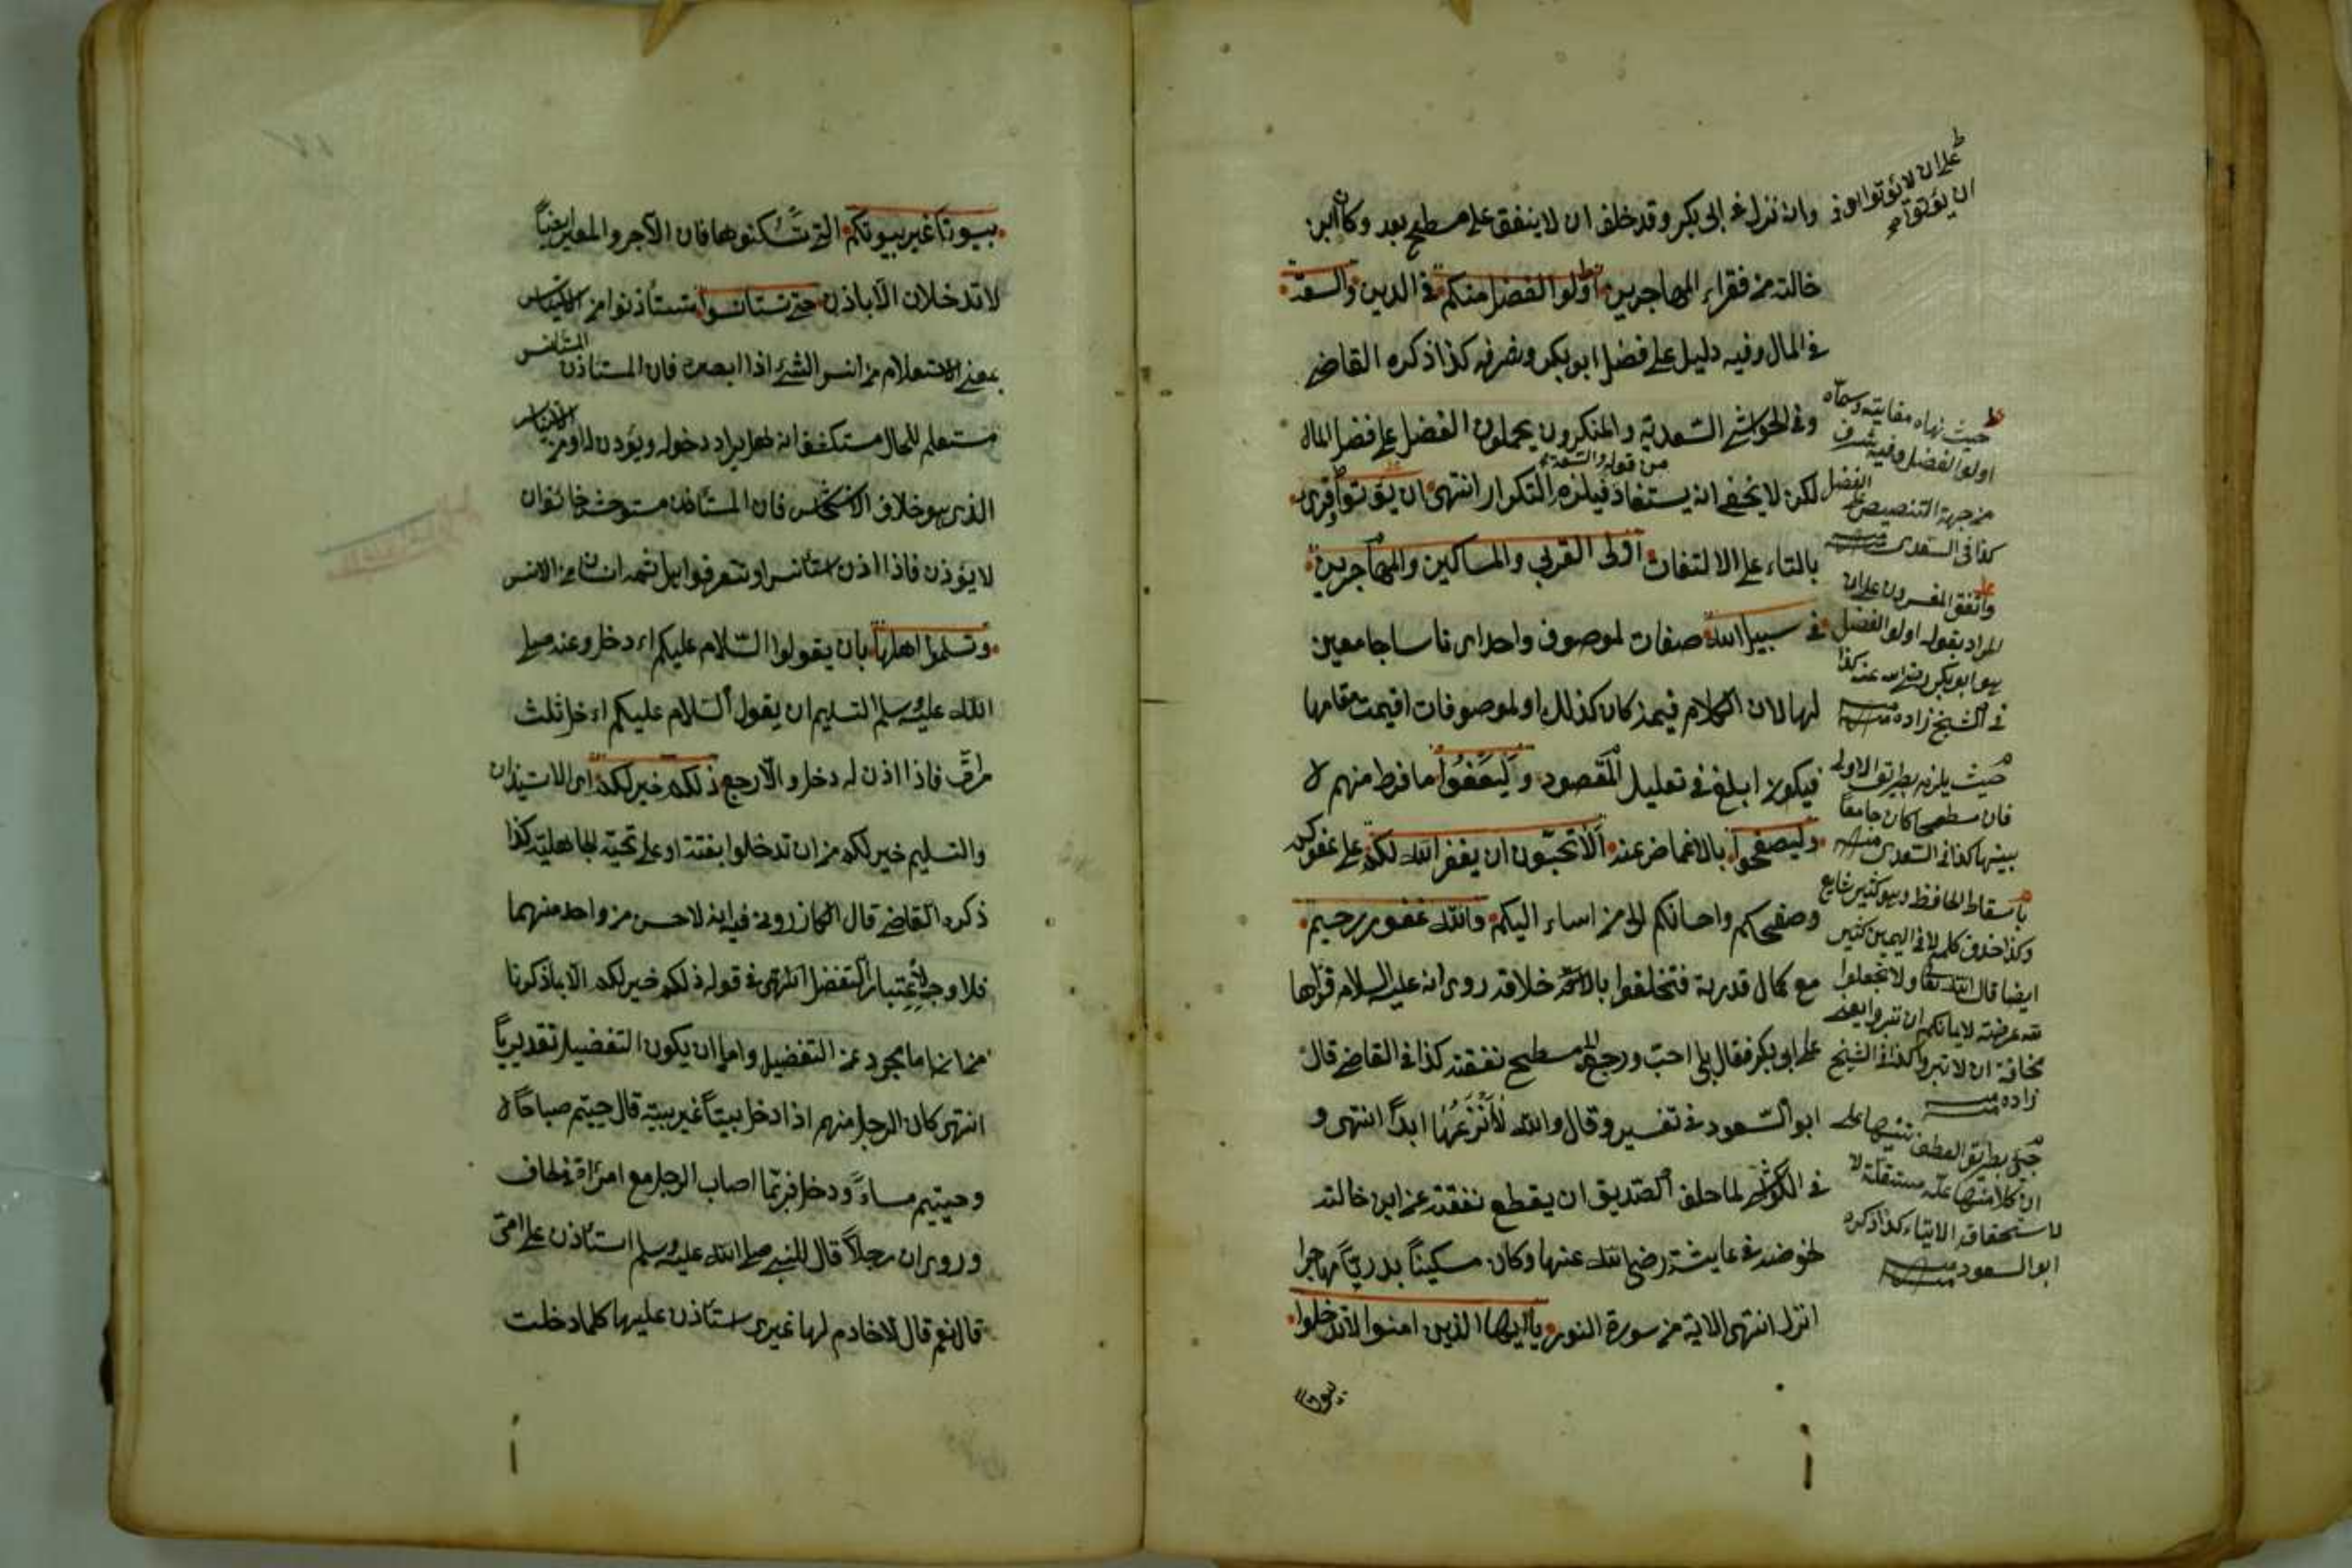 وان نزل في ابى بكر وقد حلف ان لا ينفق على مسطح بعد وكان ابن
خالته من فقراء المهاجرين اولوا الفضل منكم في الدين والسعة
في المال وفيه دليل على فضل ابو بكر وشرفه كذا ذكره القاضى
وفي الحواشى السعدية والمنكرون يحملون الفضل على فضل المال
من قوله والسعة
لكن لا يخفى انه يستفاد فيلزم التكرار انتهى ان يؤتوا وقرئ
بالتاء على الالتفات اولى القربى والمساكين والمهاجرين
في سبيل الله صفات لموصوف واحد اى ناسا جامعين
لها لان الكلام فيمن كان كذلك او لموصوفات اقيمت مقامها
فيكون ابلغ في تعليل المقصود وليعفوا ما فرط منهم
وليصفحوا بالاغماض عنه الا تحبون ان يغفر الله لكم على عفوكم
وصفحكم واحسانكم الى من اساء اليكم والله غفور رحيم
مع كمال قدرته فتخلقوا باخلاقه روى انه عليه السلام قرأها
على ابو بكر فقال بلى احب ورجع الى مسطح نفقته كذا في القاضى قال
ابو السعود في تفسيره وقال والله لا أنزعها ابدا انتهى و
في الكواشى لما حلف الصديق ان يقطع نفقته عن ابن خالته
لخوضه في عايشة رضى الله عنها وكان مسكينا بدريا مهاجرا
انزل انتهى الاية من سورة النور يا ايها الذين امنوا لا تدخلوا
بيوتا
على ان لا يؤتوا او في
ان يؤتوا
حيث نهاه
اولوا الفضل وفيه شرف
الفضل
من جهة التنصيص على
كذا في السعدى منه
واتفق المفسرون على ان
المراد بقوله اولوا الفضل
هو ابو بكر رضى الله عنه كذا
في الشيخ زاده منه
حيث يلزم بطريق الاولى
فان مسطحا كان جامعا
بينها كذا في السعدى منه
باسقاط الخافض وهو كثير شايع
وكذا حذف كلمة لا في اليمين كثير
ايضا قال الله تعا ولا تجعلوا
الله عرضة لايمانكم ان تبروا يعنى
مخافة ان لا تبروا كذا في الشيخ
زاده منه
جئ بطريق العطف تنبيها على
ان كلا منها علة مستقلة
لاستحقاق الايتاء كذا ذكره
ابو السعود منه
بيوتا غير بيوتكم التى تسكنونها فان الآجر والمعير ايضا
لا تدخلان الا باذن حتى تستأنسوا تستأذنوا من الاستيناس
بمعنى الاستعلام من انس الشئ اذا ابصره فان المستأذن
مستعلم للحال مستكشف انه هل يراد دخوله ويؤذن له او من الاستيناس
الذى هو خلاف الاستيحاش فان المستأذن مستوحش خائف ان
لا يؤذن فاذا اذن استأنس او تتعرفوا هل ثمه انسان من الانس
وتسلموا على اهلها بان يقولوا السلام عليكم اءدخل وعنه صلى
الله عليه وسلم التسليم ان يقول السلام عليكم اءدخل ثلث
مرات فاذا اذن له دخل والا رجع ذلكم خير لكم اى الاستيذان
والتسليم خير لكم من ان تدخلوا بغتة او على تحية الجاهلية كذا
ذكره القاضى قال الكازرونى فيه انه لا حسن من واحد منهما
فلا وجه لاعتبار التفضل انتهى في قوله ذلكم خير لكم الا ما ذكرنا
من انه اما مجرد عن التفضيل واما ان يكون التفضيل تقديريا
انتهى كان الرجل منهم اذا دخل بيتا غير بيته قال حييتم صباحا
وحييتم مساءً ودخل فربما اصاب الرجل مع امرأته في لحاف
وروى ان رجلاً قال للنبى صلى الله عليه وسلم استأذن على امى
قال نعم قال لا خادم لها غيرى استأذن عليها كلما دخلت